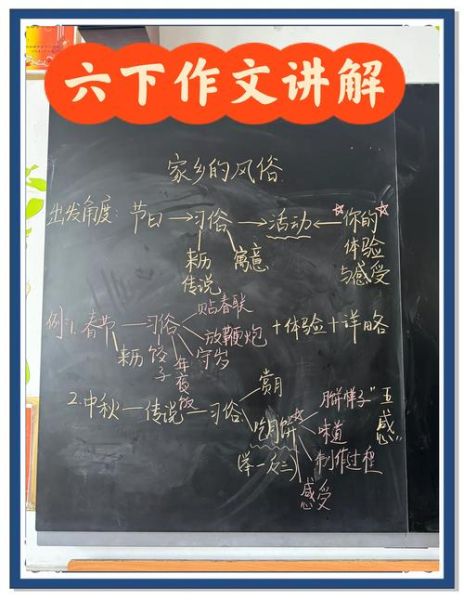 六下作文讲解
家乡的风俗
出发角度: 节日→习俗→活动←☆你的☆
体验
与感受
来历
传说
寓意
例:1.春节—习俗
贴春联
放鞭炮
守岁
年夜饭
饺子
来历
+体验+详略
2.中秋—传说—习俗
赏月
吃月饼☆
(举一反三)
月饼样子
味道
制作过程
感受
"五感"